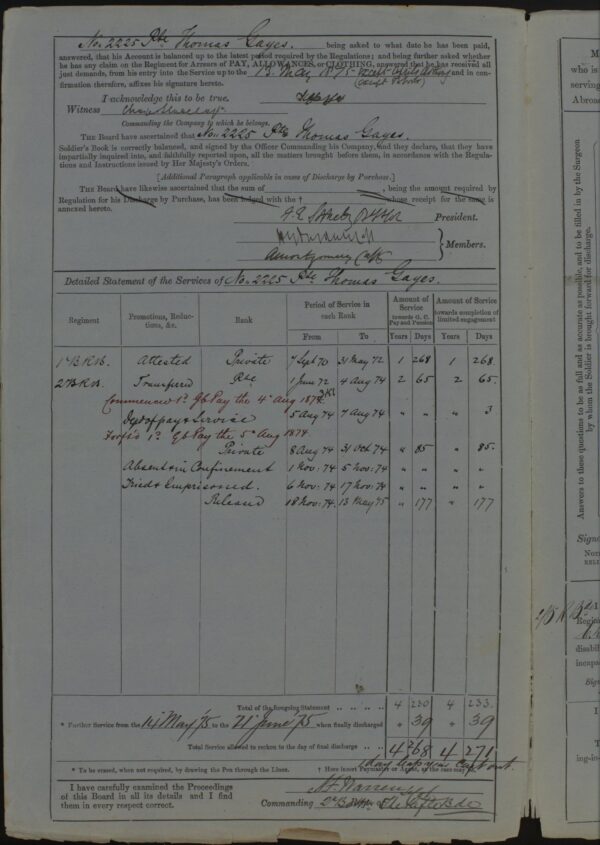 No. 2225 Pte Thomas Gayes. being asked to what date he has been paid,
answered, that his Account is balanced up to the latest period required by the Regulations; and being further asked whether
he has any claim on the Regiment for Arrears of PAY, ALLOWANCES, or CLOTHING, answered that he has received all
just demands, from his entry into the Service up to the 13. May 1875 and in con-
firmation thereof, affixes his signature hereto.
I acknowledge this to be true.
Witness
Commanding the Company to which he belongs.
THE Board have ascertained that No. 2225 Pte Thomas Gayes.
Soldier's Book is correctly balanced, and signed by the Officer Commanding his Company, and they declare, that they have
impartially inquired into, and faithfully reported upon, all the matters brought before them, in accordance with the Regula-
tions and Instructions issued by Her Majesty's Orders.
[Additional Paragraph applicable in cases of Discharge by Purchase.]
THE Board have likewise ascertained that the sum of , being the amount required by
Regulation for his Discharge by Purchase, has been lodged with the † whose receipt for the same is
annexed hereto.
President.
Members.
Detailed Statement of the Services of No. 2225 Pte Thomas Gayes.
Regiment Promotions, Reductions, &c. Rank Period of Service in each Rank Amount of Service towards G. C. Pay and Pension Amount of Service towards completion of limited engagement
From To Years Days Years Days
Attested Private 7 Sept 70 31 May 72 1 268 1 268.
Transferred Pte 1 June 72 4 Aug 74 2 65 2 65.
Commenced 1d Gd Pay the 4th Aug 1874
5 Aug 74 7 Aug 74 " " " 3
Forf'd 1d Gd Pay the 5th Aug 1874
Private 8 Aug 74 31 Oct 74 " 85 " 85.
Absent & in Confinement 1 Nov: 74 5 Nov: 74 " " " "
Tried & Imprisoned. 6 Nov: 74 17 Nov: 74 " " " "
Released 18 Nov: 74. 13 May 75 " 177 " 177
Total of the foregoing Statement 4 230 4 233.
* Further Service from the 14 May '75 to the 21 June '75 when finally discharged " 39 " 39
Total Service allowed to reckon to the day of final discharge 4 268 4 271
* To be erased, when not required, by drawing the Pen through the Lines. † Here insert Paymaster or Agent, as the case may be.
I have carefully examined the Proceedings
of this Board in all its details and I find
them in every respect correct.
Commanding
Answers to these questions to be as full and as accurate as possible, and to be filled in by the Surgeon
by whom the Soldier is brought forward for discharge.
who is
serving
Abroa